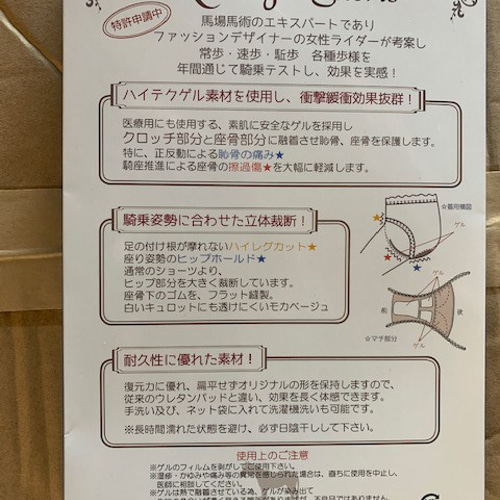 特許申請中
馬場馬術のエキスパートであり
ファッションデザイナーの女性ライダーが考案し
常歩・速歩・駈歩 各種歩様を
年間通じて騎乗テストし、効果を実感!
ハイテクゲル素材を使用し、衝撃緩衝効果抜群!
医療用にも使用する、素肌に安全なゲルを採用し
クロッチ部分と座骨部分に融着させ恥骨、座骨を保護します。
特に、正反動による恥骨の痛み★
騎座推進による座骨の擦過傷★を大幅に軽減します。
騎乗姿勢に合わせた立体裁断!
足の付け根が摩れないハイレグカット★
座り姿勢のヒップホールド★
通常のショーツより、
ヒップ部分を大きく裁断しています。
座骨下のゴムを、フラット縫製。
白いキュロットにも透けにくいモカベージュ
☆着用構図
ゲル
前
後
ゲル
☆マチ部分
耐久性に優れた素材!
復元力に優れ、扁平せずオリジナルの形を保持しますので、
従来のウレタンパッドと違い、効果を長く体感できます。
手洗い及び、ネット袋に入れて洗濯機洗いも可能です。
※長時間濡れた状態を避け、必ず日陰干しして下さい。
使用上のご注意
※ゲルのフィルムを剥がしてご使用下さい。
※湿疹・かゆみや痛み等の異常を感じられた場合は、直ちに使用を中止し、
医師に相談してください。
※ゲルは熱で融着させている為、ゲルが染み出て